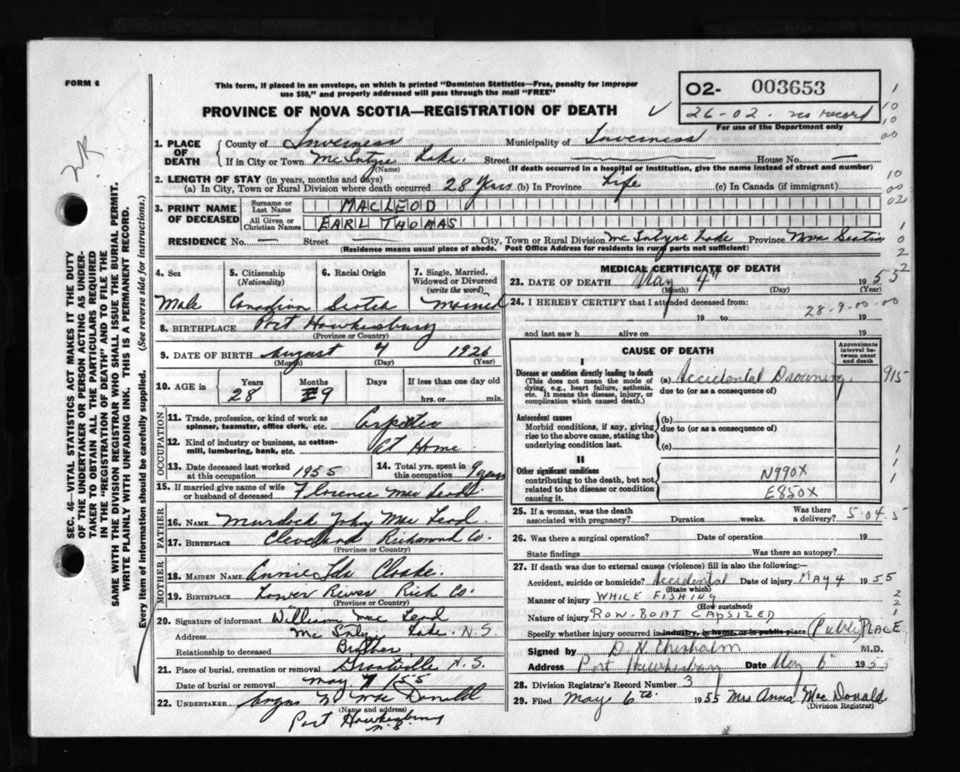 FORM 6
This form, if placed in an envelope, on which is printed "Dominion Statistics—Free, penalty for improper
use $50," and properly addressed will pass through the mail "FREE"
PROVINCE OF NOVA SCOTIA—REGISTRATION OF DEATH
O2- 003653
26-02. no record
For use of the Department only
NR
SEC. 46—VITAL STATISTICS ACT MAKES IT THE DUTY
OF THE UNDERTAKER OR PERSON ACTING AS UNDER-
TAKER TO OBTAIN ALL THE PARTICULARS REQUIRED
IN THE "REGISTRATION OF DEATH" AND TO FILE THE
SAME WITH THE DIVISION REGISTRAR WHO SHALL ISSUE THE BURIAL PERMIT.
WRITE PLAINLY WITH UNFADING INK. THIS IS A PERMANENT RECORD.
Every item of information should be carefully supplied. (See reverse side for instructions.)
1. PLACE OF DEATH County of Inverness Municipality of Inverness
If in City or Town McIntyre Lake Street House No. —
(Name) (If death occurred in a hospital or institution, give the name instead of street and number)
2. LENGTH OF STAY (in years, months and days)
(a) In City, Town or Rural Division where death occurred 28 Years (b) In Province Life (c) In Canada (if immigrant)
3. PRINT NAME OF DECEASED Surname or Last Name MACLEOD
All Given or Christian Names EARL THOMAS
RESIDENCE No. — Street City, Town or Rural Division McIntyre Lake Province Nova Scotia
(Residence means usual place of abode. Post Office Address for residents in rural parts not sufficient)
4. Sex Male
5. Citizenship (Nationality) Canadian
6. Racial Origin Scotch
7. Single, Married, Widowed or Divorced (write the word) Married
8. BIRTHPLACE Port Hawkesbury
(Province or Country)
9. DATE OF BIRTH August 7 1926
(Month) (Day) (Year)
10. AGE in Years 28 Months 9 Days If less than one day old hrs. or min.
OCCUPATION
11. Trade, profession, or kind of work as spinner, teamster, office clerk, etc. Carpenter
12. Kind of industry or business, as cotton-mill, lumbering, bank, etc. At Home
13. Date deceased last worked at this occupation 1955 14. Total yrs. spent in this occupation 9 years
15. If married give name of wife or husband of deceased Florence MacLeod
FATHER
16. NAME Murdock John MacLeod
17. BIRTHPLACE Cleveland Richmond Co.
(Province or Country)
MOTHER
18. MAIDEN NAME Annie Ida Cloake
19. BIRTHPLACE Lower River Rich Co.
(Province or Country)
20. Signature of informant William MacLeod
Address McIntyre Lake N.S.
Relationship to deceased Brother
21. Place of burial, cremation or removal Grantville N.S.
Date of burial or removal May 7 1955
22. UNDERTAKER Angus MacDonald
(Name and address)
Port Hawkesbury
N.S.
MEDICAL CERTIFICATE OF DEATH
23. DATE OF DEATH May 4th 1955
(Month) (Day) (Year)
24. I HEREBY CERTIFY that I attended deceased from:
28-9-00-00
19 to 19
and last saw h alive on 19
CAUSE OF DEATH
Approximate interval between onset and death
I
Disease or condition directly leading to death (a) Accidental Drowning 915
(This does not mean the mode of dying, e.g., heart failure, asthenia, etc. It means the disease, injury, or complication which caused death.)
due to (or as a consequence of)
Antecedent causes (b)
Morbid conditions, if any, giving rise to the above cause, stating the underlying condition last.
due to (or as a consequence of)
(c)
II
Other significant conditions contributing to the death, but not related to the disease or condition causing it.
N990X
E850X
25. If a woman, was the death associated with pregnancy? Duration weeks. Was there a delivery?
5-04-5
26. Was there a surgical operation? Date of operation 19
State findings Was there an autopsy?
27. If death was due to external causes (violence) fill in also the following:—
Accident, suicide or homicide? Accidental Date of injury MAY 4 1955
(State which)
Manner of injury WHILE FISHING
(How sustained)
Nature of injury ROW-BOAT CAPSIZED
Specify whether injury occurred in industry, in home, or in public place (PUBLIC PLACE
Signed by D. N. Chisholm M.D.
Address Port Hawkesbury Date May 6 1955
28. Division Registrar's Record Number 3
29. Filed May 6th 1955 Mrs Anna MacDonald
(Division Registrar)